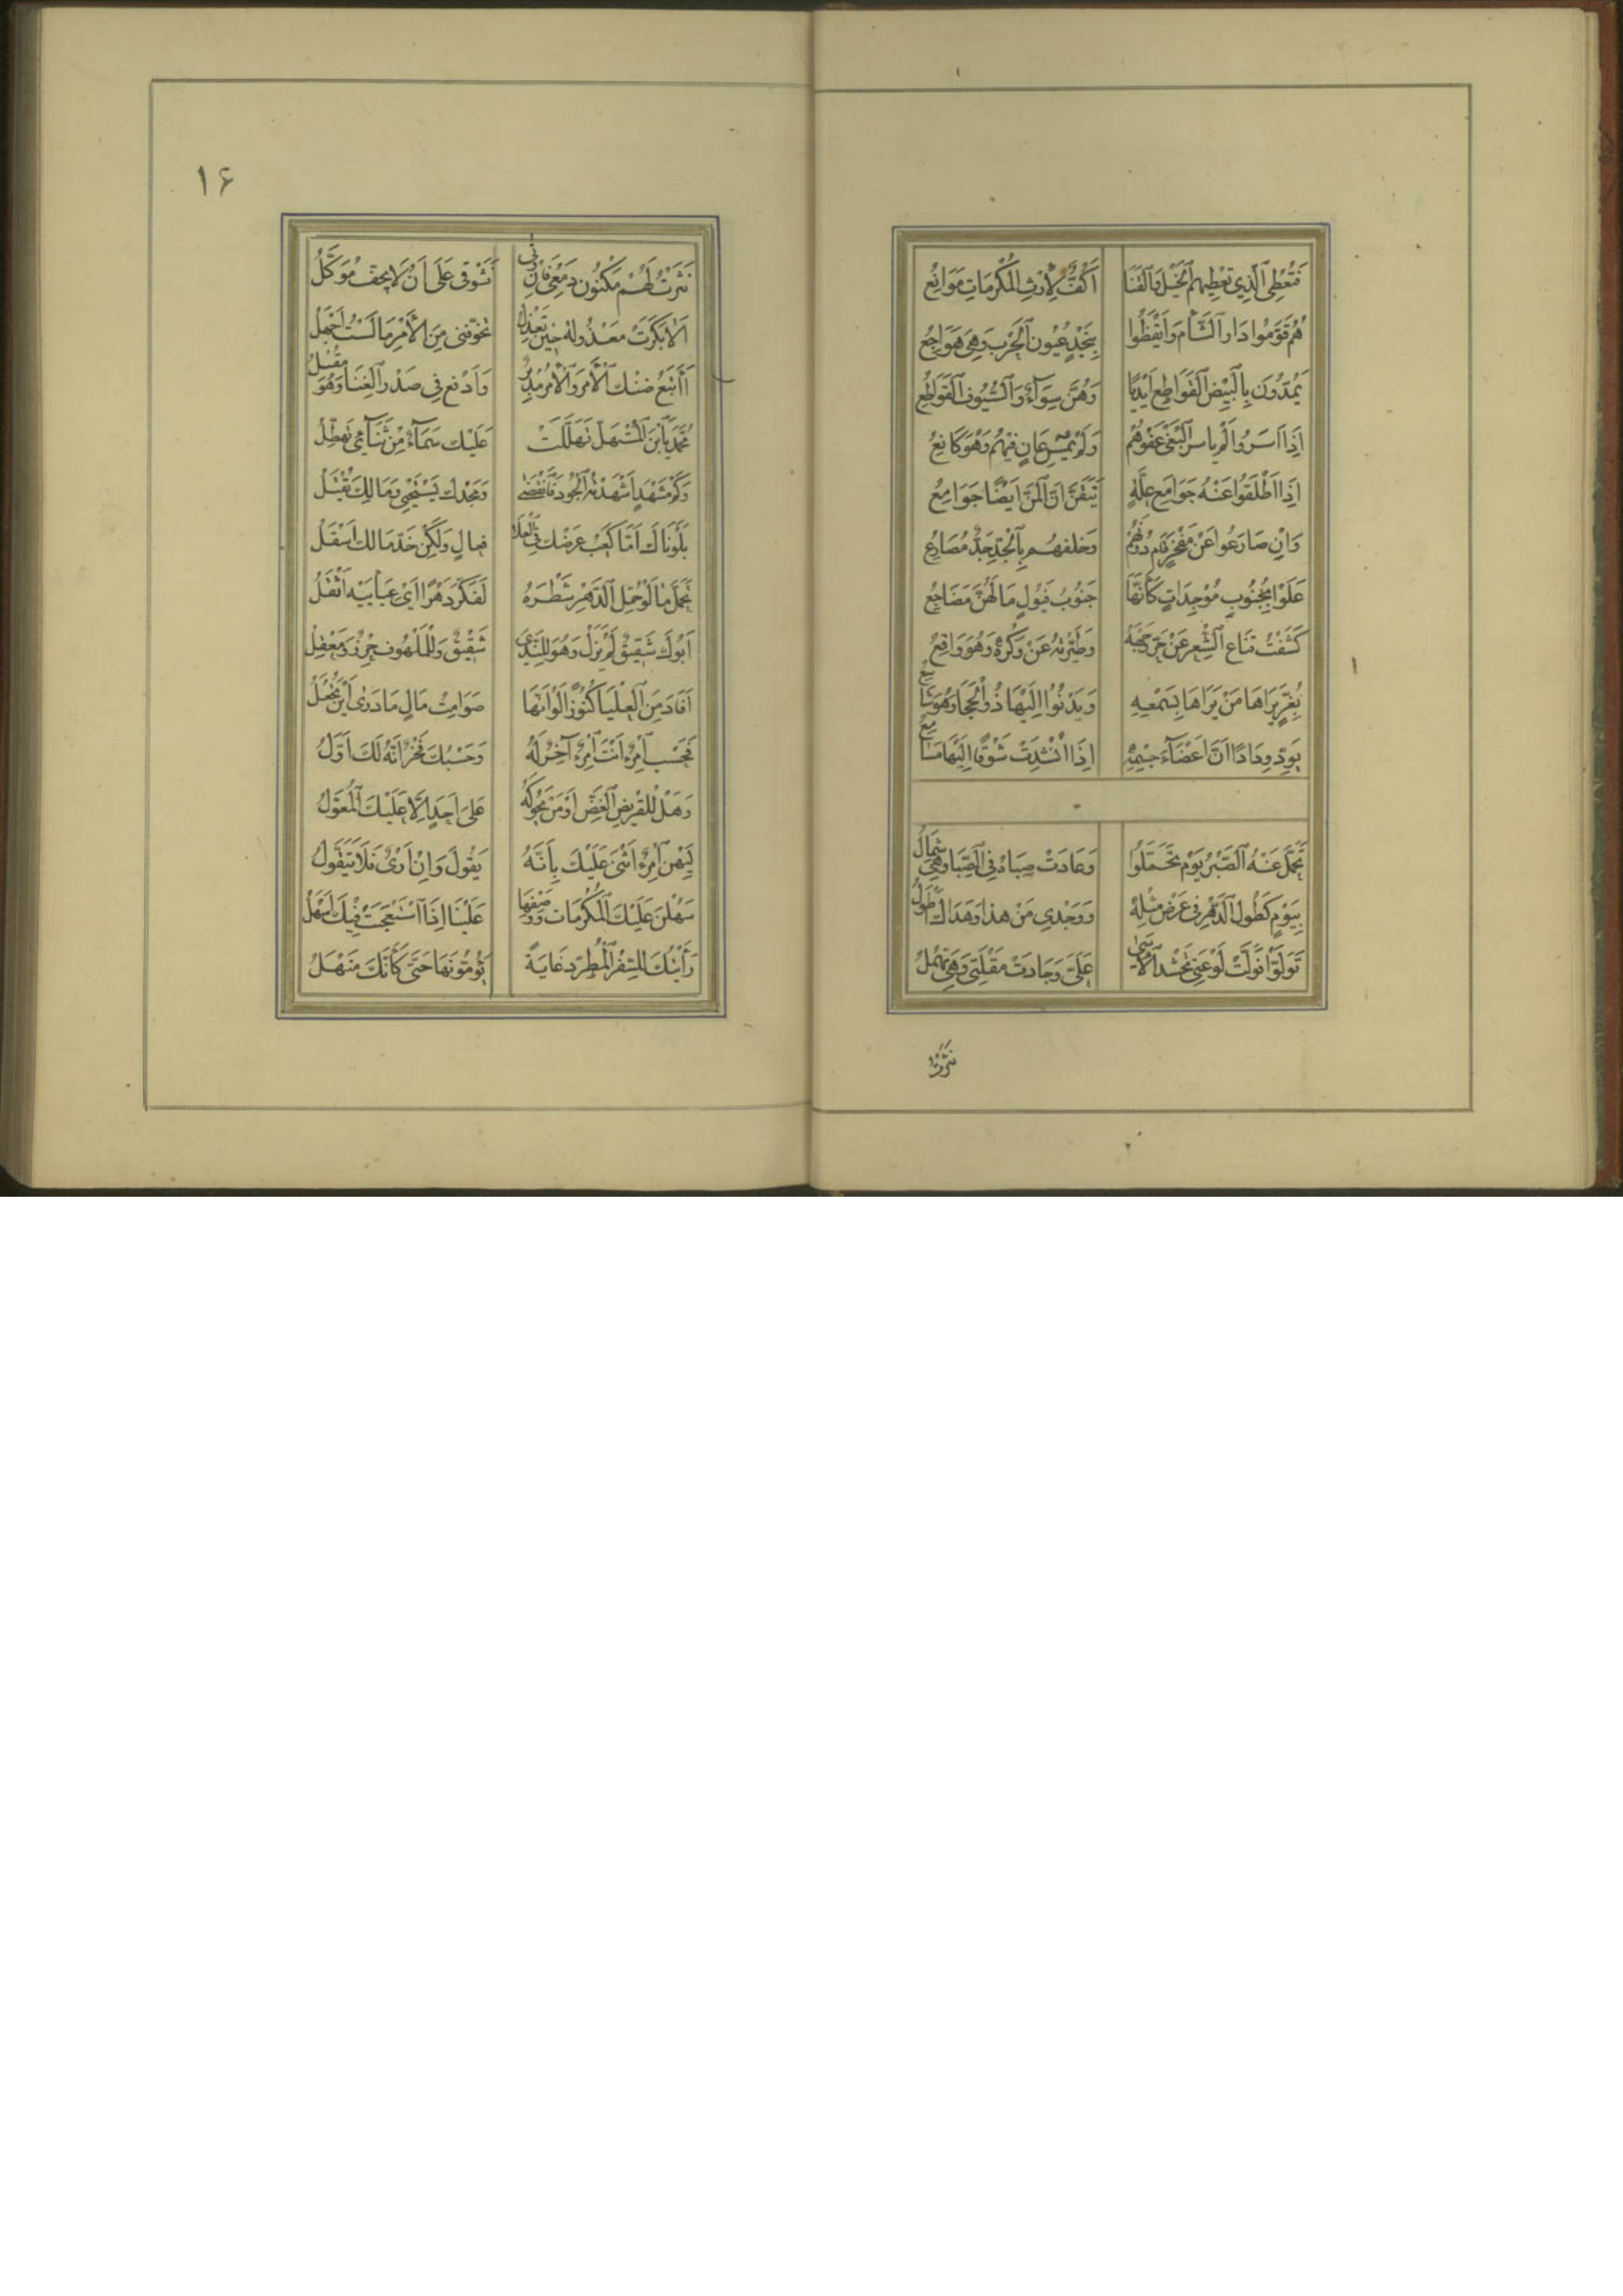 فَتُعْطِى ٱلَّذِي تُعْطِيهِمُ ٱلْخَيْلُ وَٱلْقَنَا اَكُفٌّ لِاِرْثِ ٱلْمَكْرُمَاتِ مَوَانِعُ
هُمُ قَوَّمُوا دَارَ ٱلشَّأْمِ وَاَيْقَظُوا بِنَجْدٍ عُيُونَ ٱلْحَرْبِ وَهِيَ هَوَاجِعُ
يَمُدُّونَ بِالْبِيضِ ٱلْقَوَاطِعِ اَيْدِيًا وَهُنَّ سِوَآءٌ وَٱلسُّيُوفُ ٱلْقَوَاطِعُ
اِذَا اَسَرُوا لَمْ يَاْسِرِ ٱلْبَغْيُ عَفْوَهُمْ وَلَمْ يُمْسِ عَانٍ فِيهُمُ وَهْوَ كَانِعُ
اِذَا اَطْلَقُوا عَنْهُ جَوَامِعَ غُلَّةٍ تَيَقَّنَ اَنَّ ٱلْمَنَّ اَيْضًا جَوَامِعُ
وَاِنْ صَارَعُوا عَنْ مَفْخَرٍ قَامَ دُونَهُمْ وَخَلْفَهُمْ بِٱلْجَدِّ جَدٌّ مُصَارِعُ
عَلَوْا بِجُنُوبٍ مُوْجِدَاتٍ كَاَنَّهَا جَنُوبُ فَيُولٍ مَا لَهُنَّ مَضَاجِعُ
كَشَفْتُ قِنَاعَ ٱلشِّعْرِ عَنْ حُرِّ وَجْهِهِ وَطَيَّرْتُهُ عَنْ وَكْرِهِ وَهُوَ وَاقِعُ
بِغُرٍّ يَرَاهَا مَنْ يَرَاهَا بِسَمْعِهِ وَيَدْنُوا اِلَيْهَا ذُو ٱلْحِجَا وَهُوَ شَاسِعُ
يَوَدُّ وِدَادًا اَنَّ اَعْضَآءَ جِسْمِهِ اِذَا اُنْشِدَتْ شَوْقًا اِلَيْهَا مَسَامِعُ
تَحَمَّلَ عَنْهُ ٱلصَّبْرُ يَوْمَ تَحَمَّلُوا وَعَادَتْ صَبَاهُ فِى ٱلصِّبَا وَهِيَ شَمْاَلُ
بِيَوْمٍ كَطُولِ ٱلدَّهْرِ فِى عَرْضِ مِثْلِهِ وَوَجْدِي مِنْ هذَا وَهَذَاكَ اَطْوَلُ
تَوَلَّوْا فَوَلَّتْ لَوْعَتِى تَحْشُدُ ٱلْاَسَى عَلَيَّ وَجَادَتْ مُقْلَتِى وَهِيَ تَهْمُلُ
نثرت
۱۶
نَثَرْتُ لَهُمْ مَكْنُونَ دَمْعِى فَاِنْ وَنَى فَشَوْقِى عَلَى اَنْ لَا يَجِفَّ مُوَكَّلُ
اَلَا بَكَرَتْ مَعْذُولَةٌ حِينَ تَعْذِلُ تُخَوِّفُنِى مِنَ الْاَمْرِ مَا لَسْتُ اَجْهَلُ
أَاَتْبَعُ ضَنْكَ ٱلْاَمْرِ وَٱلْاَمْرُ مُدْبِرٌ وَاَدْفَعُ فِى صَدْرِ ٱلْغِنَا وَهُوَ مُقْبِلُ
مُحَمَّدُ يَا بْنَ ٱلْمُسْتَهَلِّ تَهَلَّلَتْ عَلَيْكَ سَمَآءٌ مِنْ ثَنَآئِى تَهْطِلُ
وَكَمْ مَشْهَدٍ اَشْهَدْتَهُ ٱلْجُودَ فَانْقَضَى وَمَجْدُكَ يَسْتَحْيِي وَمَالُكَ يُقْتَلُ
بَلَوْنَاكَ اَمَّا كَعْبُ عِرْضِكَ فِى ٱلْعُلَا فَعَالٍ وَلَكِنْ خَدُّ مَالِكَ اَسْفَلُ
تَحَمَّلَ مَا لَوْ حُمِّلَ ٱلدَّهْرُ شَطْرَهُ لَفَكَّرَ دَهْرًا اَيُّ عِبْأَيْهِ اَثْقَلُ
اَبُوكَ شَقِيقٌ لَمْ يَزَلْ وَهُوَ لِلنَّدَى شَقِيقٌ وَلِلْمَلْهُوفِ حِرْزٌ وَمَعْقِلُ
اَفَادَ مِنَ ٱلْعَلْيَا كُنُوزًا لَوْ اَنَّهَا صَوَامِتُ مَالٍ مَا دَرَى اَيْنَ تُجْعَلُ
فَحَسْبُ ٱمْرِءٍ اَنْتَ ٱمْرُءٌ آخِرٌ لَهُ وَحَسْبُكَ فَخْرًا اَنَّهُ لَكَ اَوَّلُ
وَهَلْ لِلْقَرِيضِ ٱلْغَضِّ اَوْ مَنْ يَحُوكُهُ عَلَى اَحَدٍ اِلَّا عَلَيْكَ ٱلْمُعَوَّلُ
لِيَهْنَ ٱمْرِءٌ اَثْنَى عَلَيْكَ بِاَنَّهُ يَقُولُ وَاِنْ اَرْبَى فَلَا يَتَقَوَّلُ
سَهُلْنَ عَلَيْكَ ٱلْمَكْرُمَاتُ وَوَصْفُهَا عَلَيْنَا اِذَا ٱسْتَجْمَعَتْ فِيكَ اَسْهَلُ
رَأَيْتُكَ لِلسَّفْرِ ٱلْمُطَرَّدِ غَايَةً يَؤُمُّونَهَا حَتَّى كَاَنَّكَ مَنْهَلُ